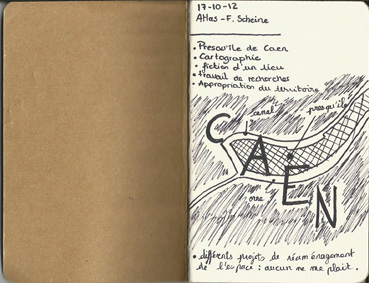 17-10-12
Atlas - F. Scheine
• Presqu'île de Caen
• Cartographie
• fiction d'un lieu
• travail de recherches
• Appropriation du territoire
canal
presqu'île
CAEN
orne
• différents projets de réaménagement
de l'espace : aucun ne me plait.